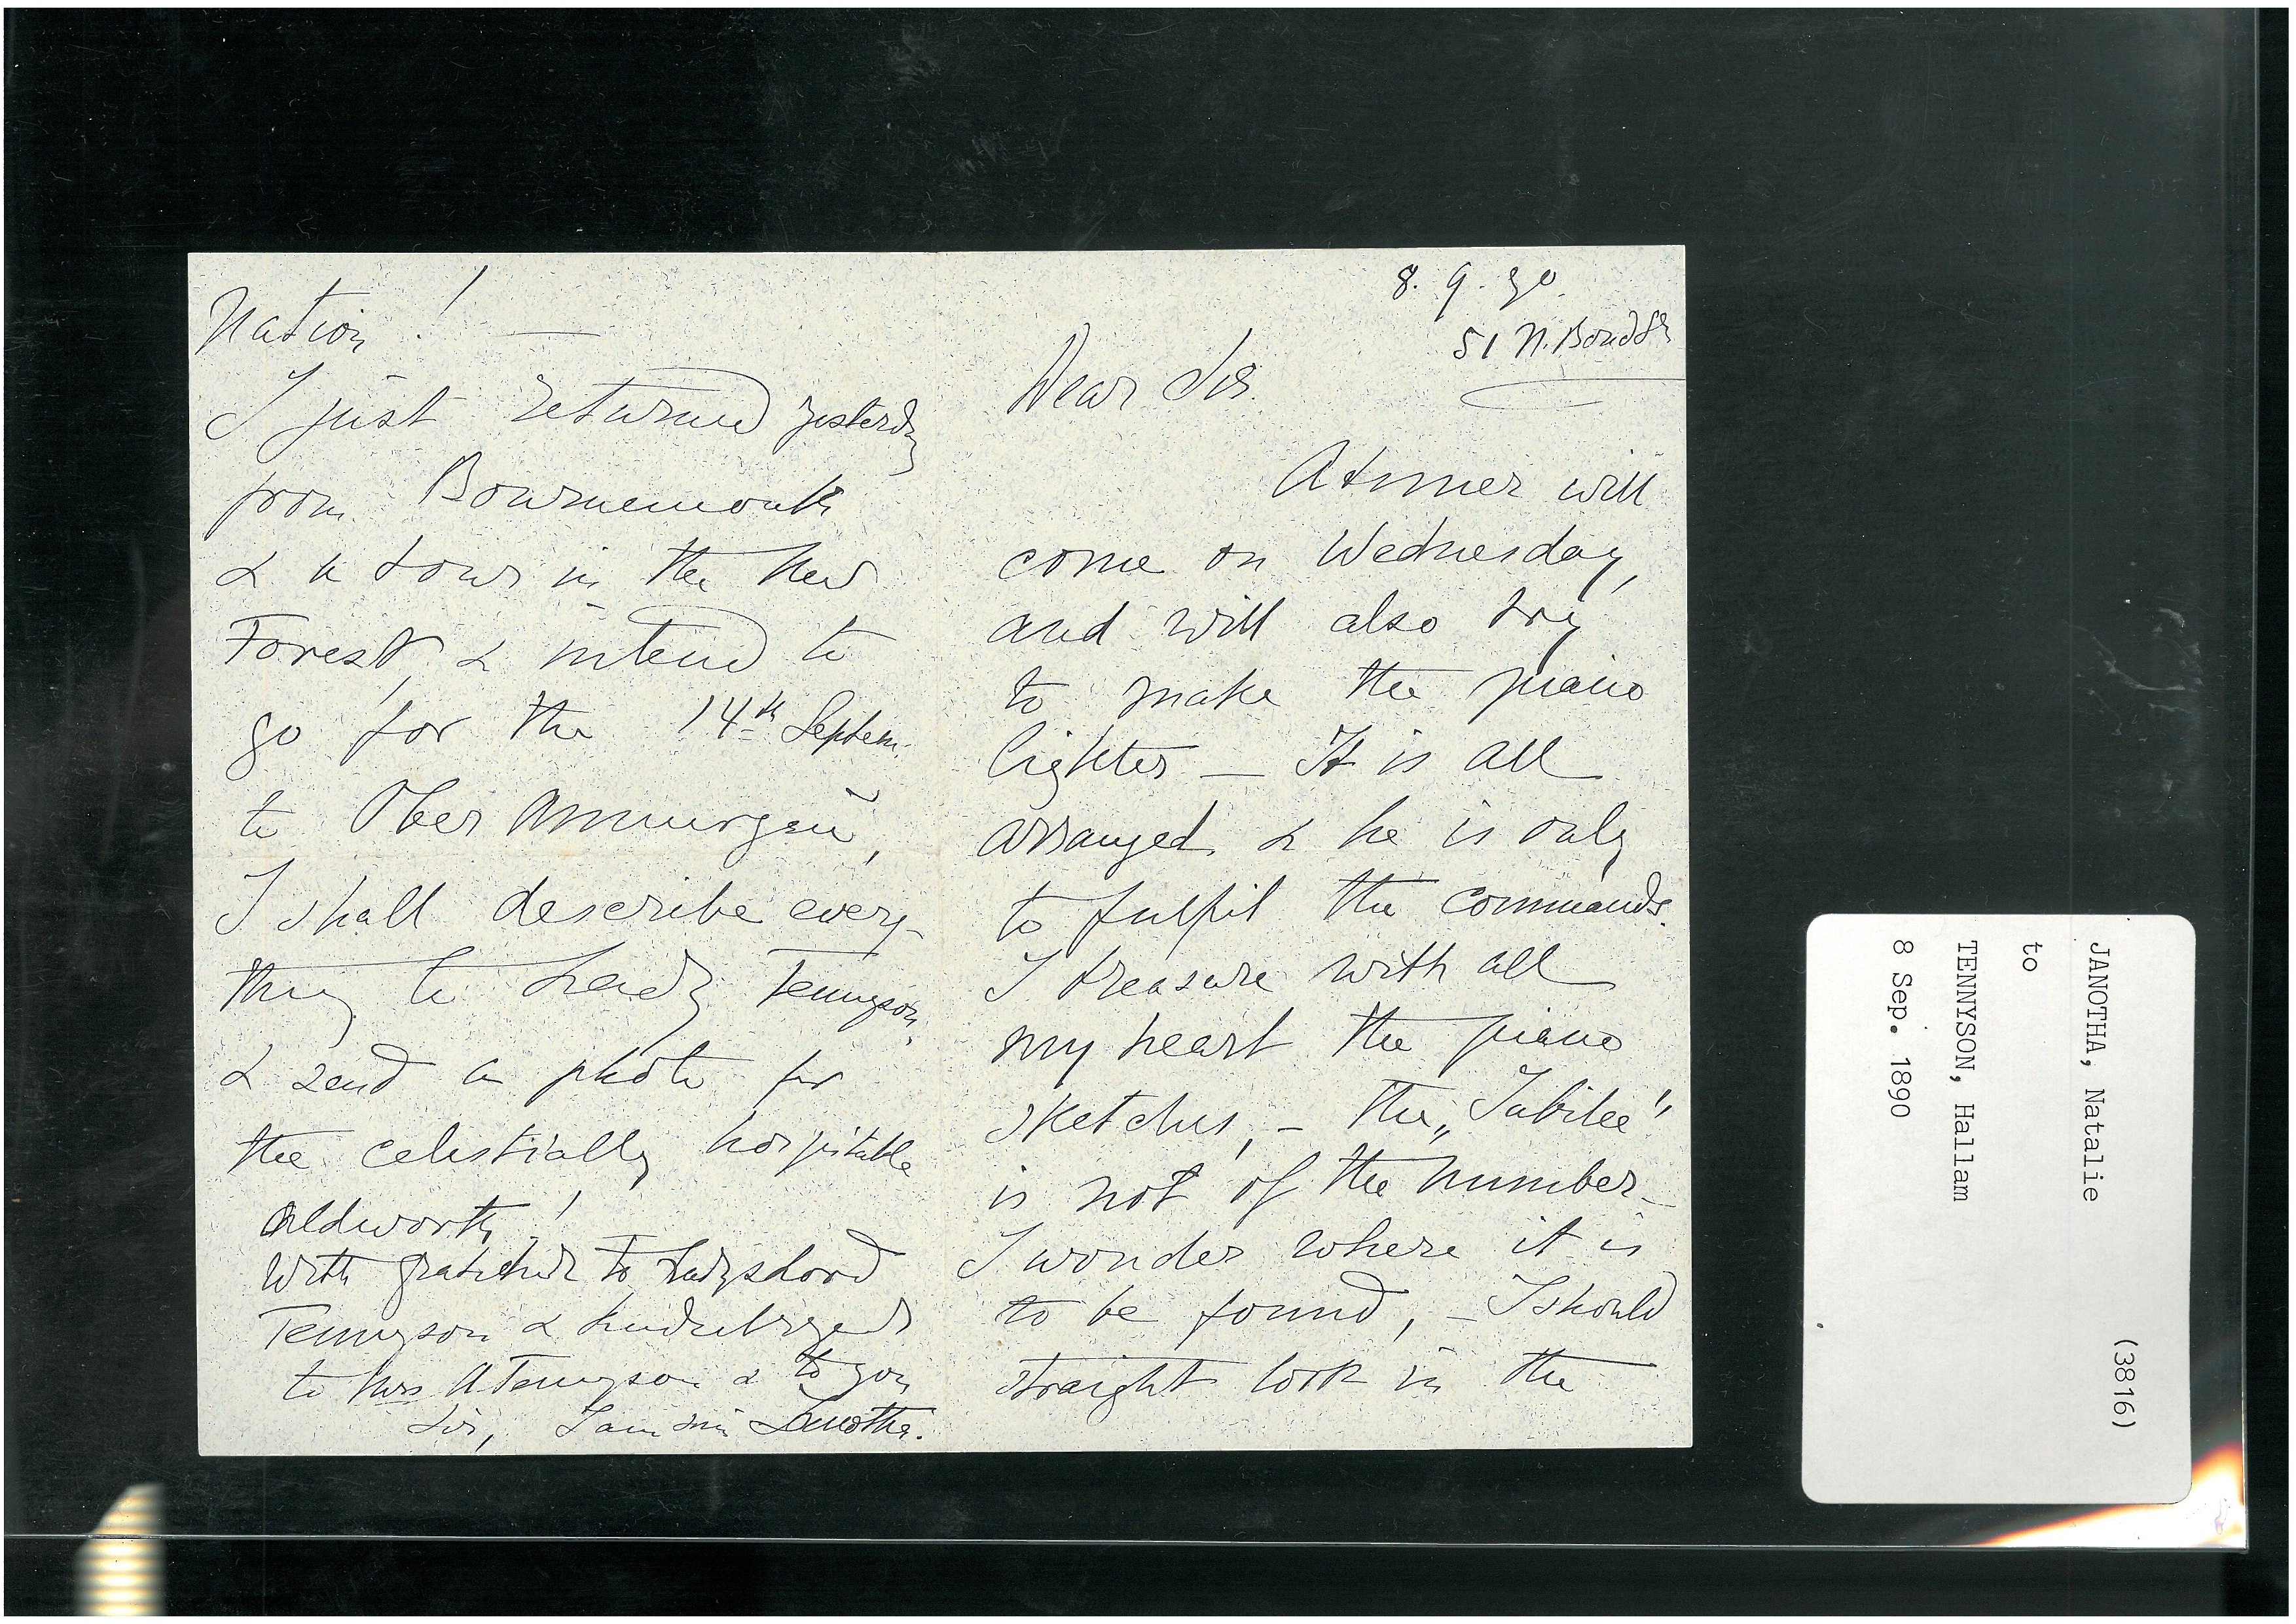 8. 9. 90.
51 N. Bond St
Dear Sir.
A tuner will
come on Wednesday,
and will also try
to make the piano
lighter — It is all
arranged & he is only
to fulfil the commands.
I treasure with all
my heart the piano
sketches, — the „Jubilee"
is not of the number —
I wonder where it is
to be found, — I should
straight look in the
Nation! —
I just returned yesterday
from Bournemouth
& a tour in the New
Forest, & intend to
go for the 14th Septem.
to Ober Ammergau,
I shall describe every-
thing to Lady Tennyson,
& send a photo for
the celestially hospitable
Aldworth!
With gratitude to Lady & Lord
Tennyson & kindest regards
to Mrs A Tennyson & to you
Sir, I am Janotha.
JANOTHA, Natalie (3816)
to
TENNYSON, Hallam
8 Sep. 1890